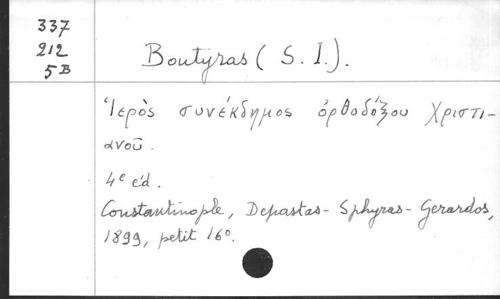 337
212
5B
Boutyras (S. I.).
Ἱερὸς συνέκδημος ὀρθοδόξου Χριστι-
ανοῦ.
4e éd.
Constantinople, Depastas - Sphyras - Gerardos,
1899, petit 16°.